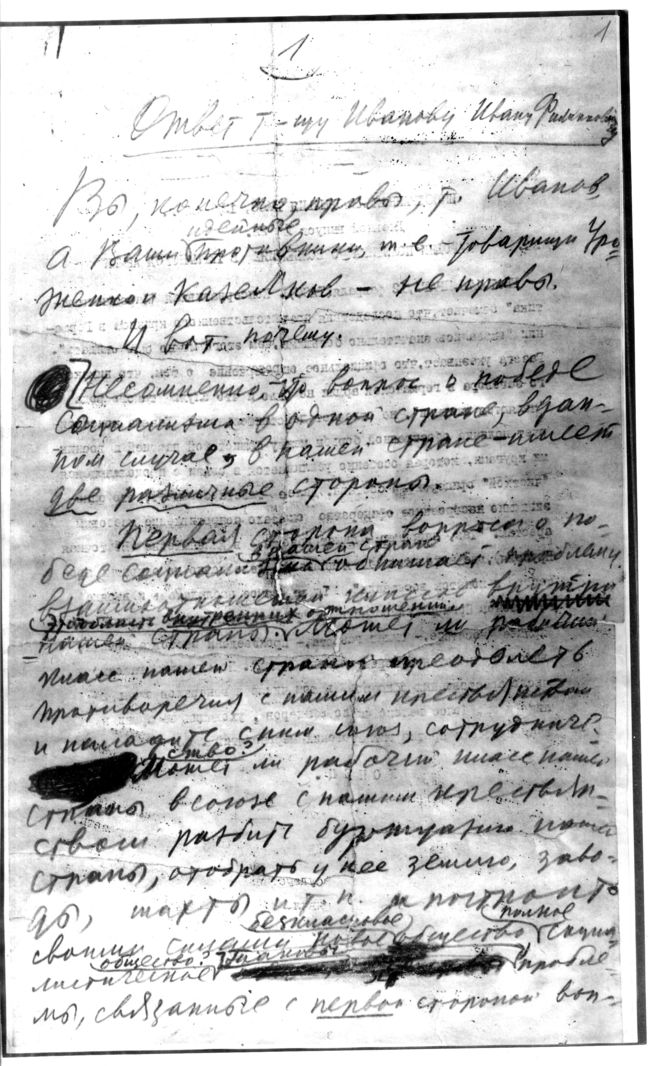 1
1
Ответ т-щу Иванову Ивану Филипповичу
Вы, конечно, правы, т. Иванов,
идейные
а Ваши противники, т.е. товарищи Уро-
женко и Казелков – не правы.
И вот почему.
Несомненно, что вопрос о победе
социализма в одной стране, в дан-
ном случае, в нашей стране имеет
две различные стороны.
Первая сторона вопроса о по-
в нашей стране
беде социализма обнимает проблему
взаимоотношений классов внутри
Это область внутренних отношений
нашей страны. Может ли рабочий
класс нашей страны преодолеть
противоречия с нашим крестьянством
и наладить с ним союз, сотрудниче-
ство?
Может ли рабочий класс нашей
страны в союзе с нашим крестьян-
ством разбить буржуазию нашей
страны, отобрать у нее землю, заво-
ды, шахты и т.п. и построить
безклассовое полное
своими силами новое общество социа-
общество? Таковы
листическое пробле-
мы, связанные с первой стороной воп-